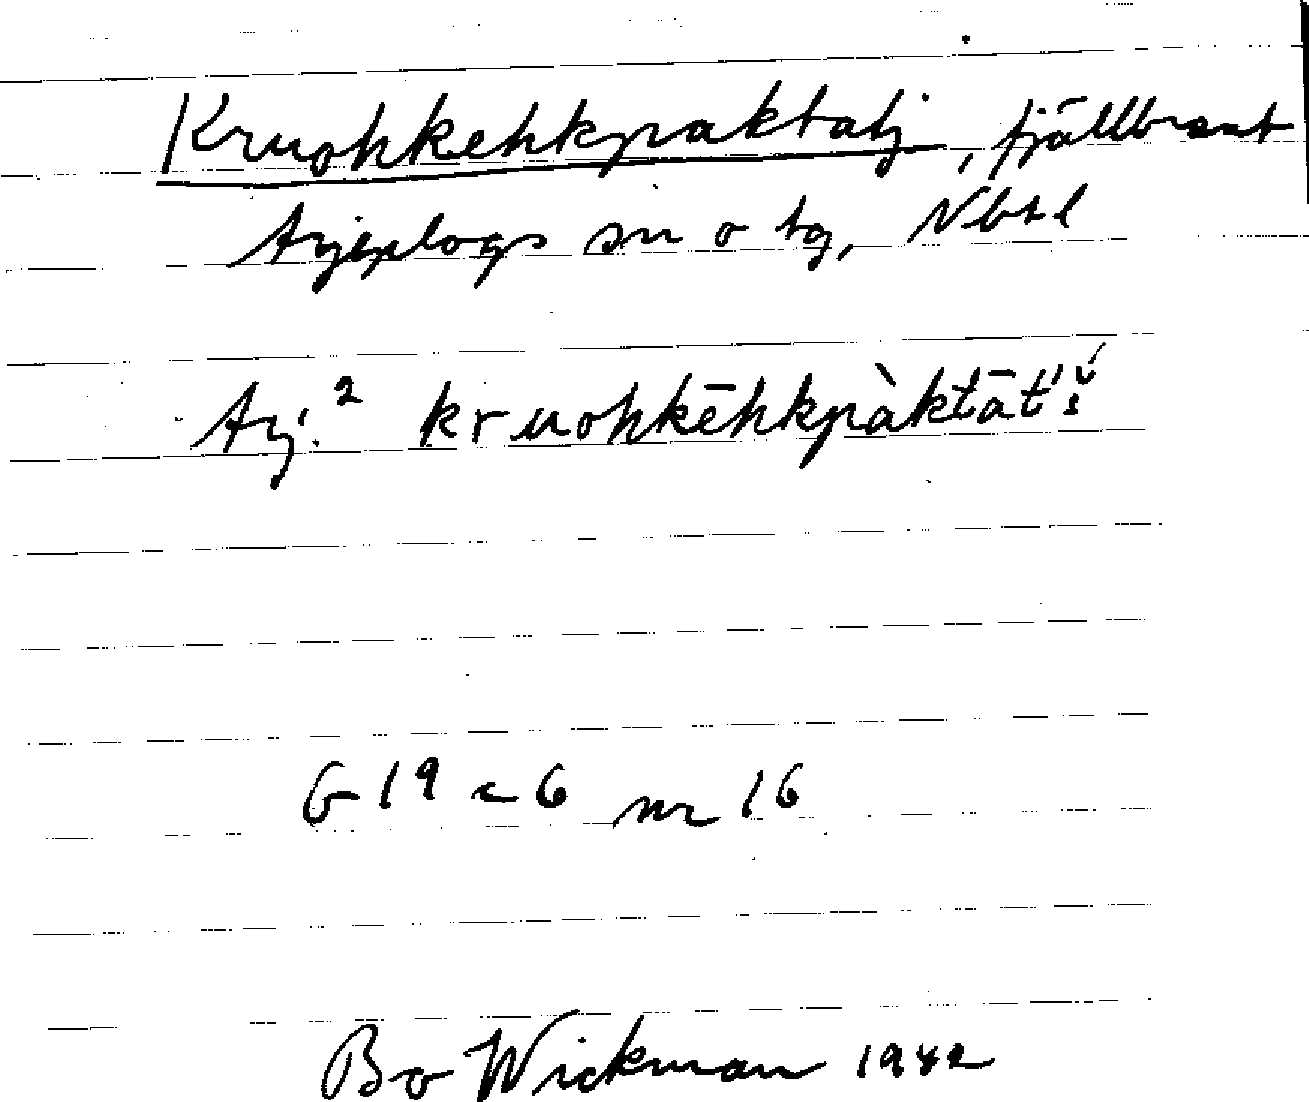 Kruohkehkpaktatj, fjällbrant
Arjeplogs sn o tg, Nbtl
Arj.² kruohkēhkpàktāt'š́
G 19 c 6 nr 16
Bo Wickman 1942